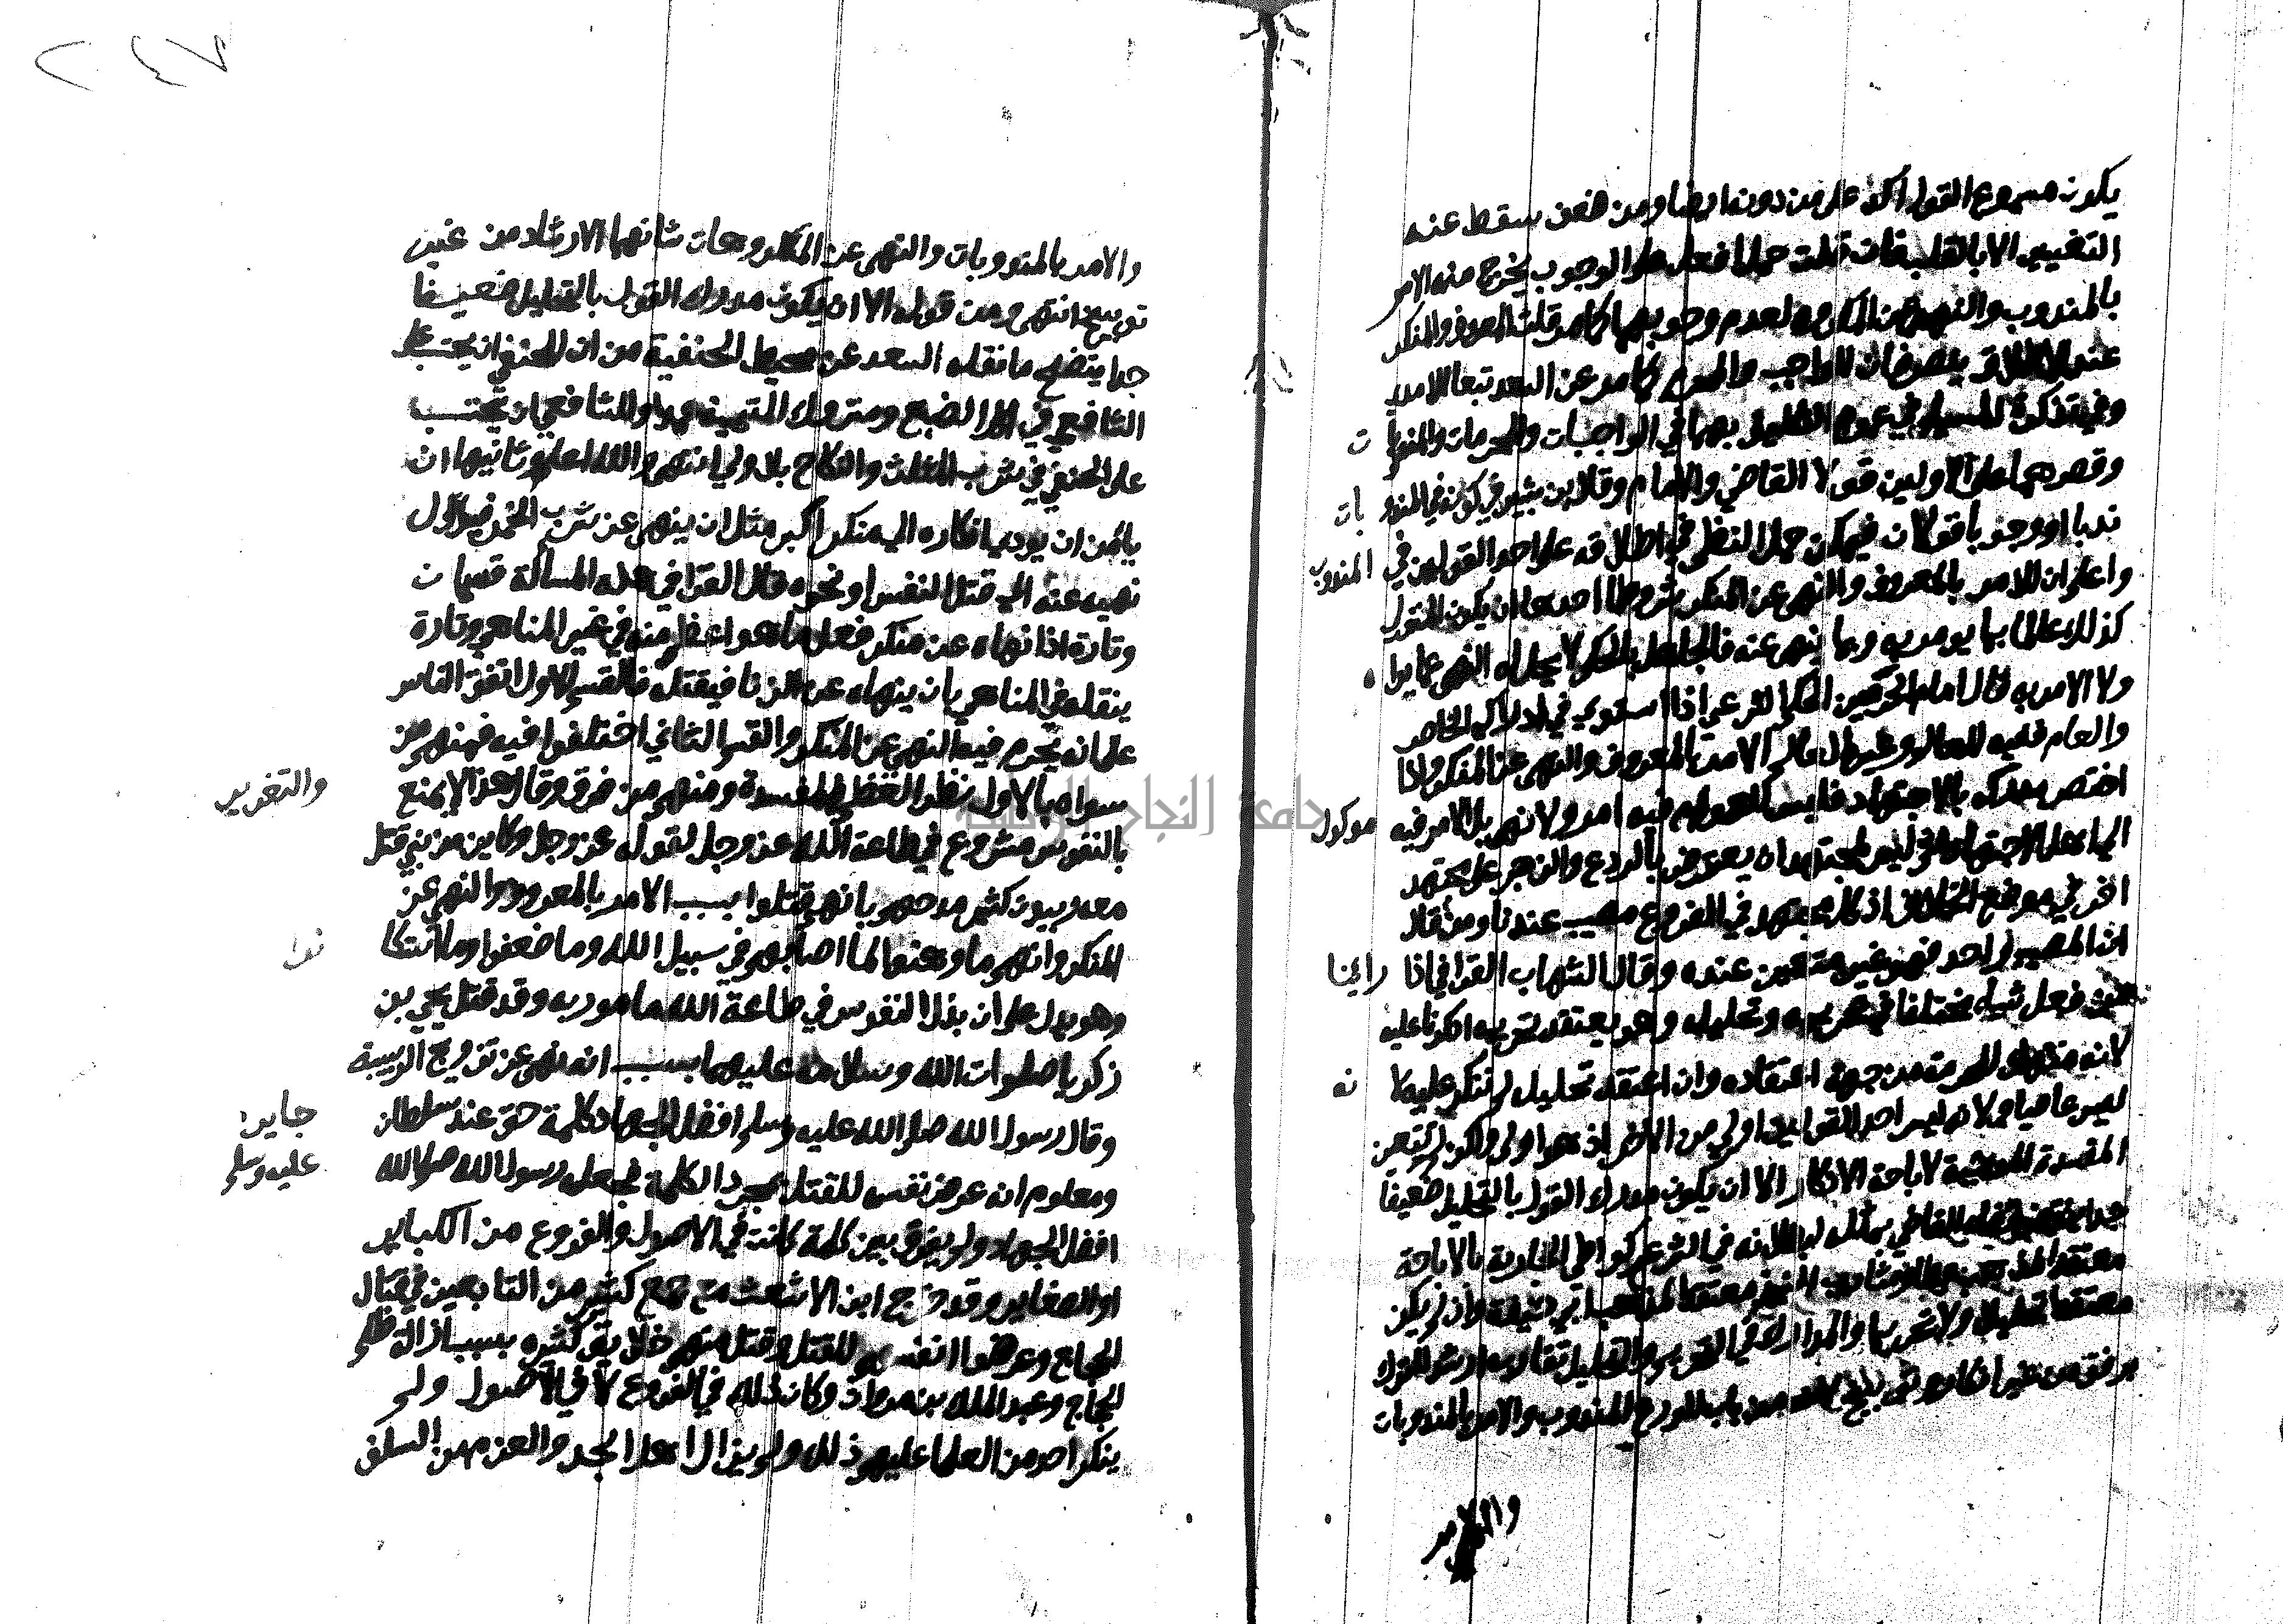 يكون مسموع القول اكد على من دونه ايضا ومن ضعف سقط عنه
التغيير الا بالقلب فان قلت حمل افعل على الوجوب يخرج منه الامر
بالمندوب والنهي عن المكروه لعدم وجوبهما كما مر قلت المعروف والمنكر
عند الاطلاق ينصرفان للواجب والمحرم كما مر عن السعد تبعا للامدي
وفي تذكرة في عموم التكليف بهما في الواجبات والمحرمات والمندوبات
وقصرهما على الاولين قولا القاضي والامام وقال ابن بشير في كونه في المندوبات
ندبا او وجوبا قولان فيمكن حمل النظم في اطلاقه على احد القولين في المندوب
واعلم ان للامر بالمعروف والنهي عن المنكر شروطا احدها ان يكون المتولي
كذلك عالما بما يومر به وما ينهى عنه فالجاهل بالحكم لا يحل له النهي عما يراه
ولا الامر به قال امام الحرمين الحكم الشرعي اذا استوى في ادراكه الخاص
والعام ففيه للعالم وغير العالم الامر بالمعروف والنهي عن المنكر واذا
اختص مدركه بالاجتهاد فليس للعوام فيه امر ولا نهي بل الامر فيه موكول
الى اهل الاجتهاد ثم ليس لمجتهد ان يعترض بالردع والزجر على مجتهد
اخر في موضع الخلاف اذ كل مجتهد في الفروع مصيب عندنا ومن قال
ان المصيب واحد فهو غير متعين عنده وقال الشهاب القرافي اذا راينا
من فعل شيا مختلفا في تحريمه وتحليله وهو يعتقد تحريمه انكرنا عليه
لانه منتهك للحرمة من جهة اعتقاده وان اعتقد تحليله لم ننكر عليه لانه
ليس عاصيا ولانه ليس احد القولين اولى من الاخر اذ هما اولى ولكن لم تتعين
المفسدة الموجبة لاباحة الانكار الا ان يكون مدرك القول بالتحليل ضعيفا
جدا ينقض قضا القاضي بمثله لبطلانه في الشرع كواطي الجارية بالاباحة
معتقدا لمذهب عطا وشارب النبيذ معتقدا لمذهب ابي حنيفة وان لم يكن
معتقدا تحليلا ولا تحريما والمدارك في التحريم والتحليل متقاربه ارشد للترك
برفق من غير انكار وتوبيخ لانه من باب الورع المندوب والامر بالمندوبات
والامر
والامر بالمندوبات والنهي عن المكروهات شانهما الارشاد من غير
توبيخ انتهى ومن قوله الا ان يكون مدرك القول بالتحليل ضعيفا
جدا يتضح ما نقله السعد عن محيط الحنفية من ان للحنفي ان يحتسب على
الشافعي في اكل الضبع ومتروك التسمية عمدا وللشافعي ان يحتسب
على الحنفي في شرب المثلث والنكاح بلا ولي انتهى والله اعلم وثانيها ان
يامن ان يودي انكاره الى منكر اكبر مثل ان ينهى عن شرب الخمر فيوول
نهيه عنه الى قتل النفس او نحوه قال القرافي هذه المسألة قسمان
وتارة اذا نهاه عن منكر فعل ما هو اعظم منه في غير الناهي وتارة
ينقله في الناهي بان ينهاه عن الزنا فيقتله فالقسم الاول اتفق الناس
على انه يحرم فيه النهي عن المنكر والقسم الثاني اختلفوا فيه فمنهم من
سواه بالاول نظرا لعظم المفسدة ومنهم من فرق وقال هذا لا يمنع والتغرير
بالنفوس مشروع في طاعة الله عز وجل لقوله عز وجل وكاين من نبي قتل
معه ربيون كثير مدحهم بانهم قتلوا بسبب الامر بالمعروف والنهي عن
المنكر وانهم ما وهنوا لما اصابهم في سبيل الله وما ضعفوا وما استكانوا
وهو يدل على ان بذل النفوس في طاعة الله مامور به وقد قتل يحيى بن
زكريا صلوات الله وسلامه عليهما بسبب انه نهى عن تزويج الربيبة
وقال رسول الله صلى الله عليه وسلم افضل الجهاد كلمة حق عند سلطان جاير
ومعلوم انه عرض نفسه للقتل بمجرد الكلمة فجعله رسول الله صلى الله عليه وسلم
افضل الجهاد ولم يفرق بين كلمة كانت في الاصول والفروع من الكباير
او الصغاير وقد خرج ابن الاشعث مع جمع كثير من التابعين في قتال
الحجاج وعرضوا انفسهم للقتل وقتل منهم خلايق كثيره بسبب ازالة ظلم
الحجاج وعبد الملك بن مروان وكان ذلك في الفروع لا في الاصول ولم
ينكر احد من العلما عليهم ذلك ولم يزل اهل الجد والعزم من السلف
جامعة النجاح الوطنية
٢٤٧